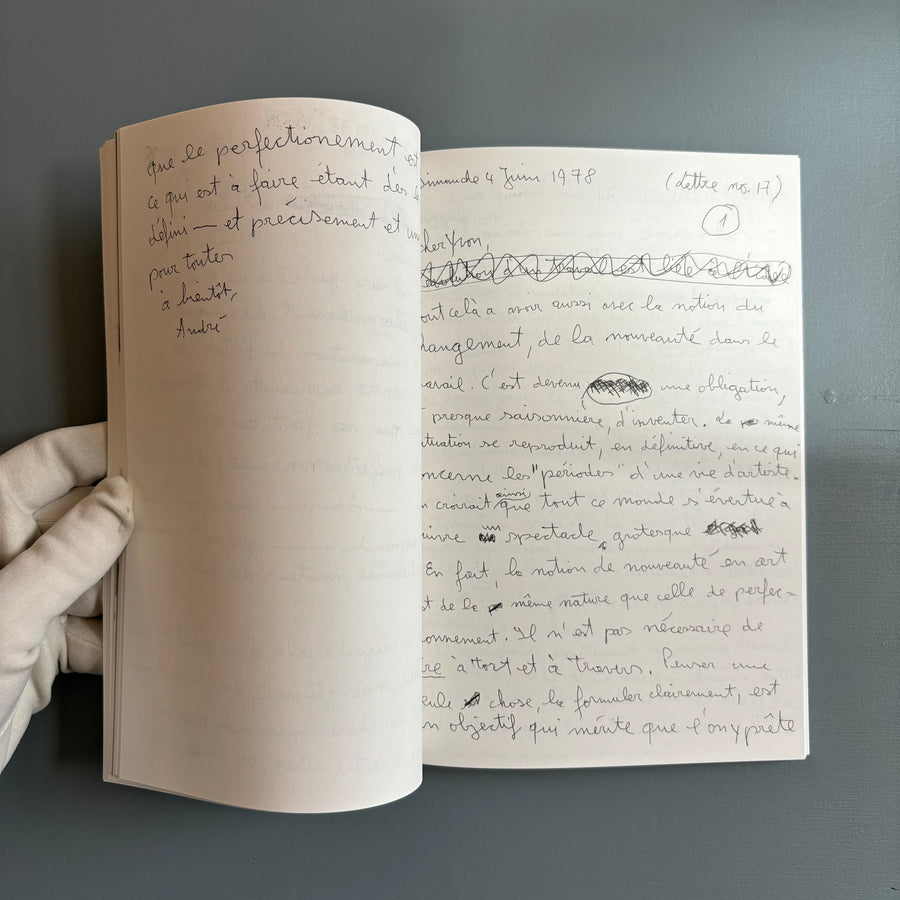 que le perfectionement est
ce qui est à faire étant dès le
défini — et précisement et une
pour toutes
à bientôt,
André
Dimanche 4 Juin 1978 (Lettre no. 17)
1
cher Yvon,
out celà a avoir aussi avec la notion du
hangement, de la nouveauté dans le
avail. C'est devenu une obligation,
presque saisonnière, d'inventer. La même
ituation se reproduit, en définitive, en ce qui
ncerne les "périodes" d'une vie d'artiste.
n croirait ainsi que tout ce monde s'évertue à
uivre un spectacle grotesque
En fait, la notion de nouveauté en art
st de la même nature que celle de perfec-
onnement. Il n'est pas nécessaire de
ire à tort et à travers. Penser une
eule chose, la formuler clairement, est
n objectif qui mérite que l'on y prête